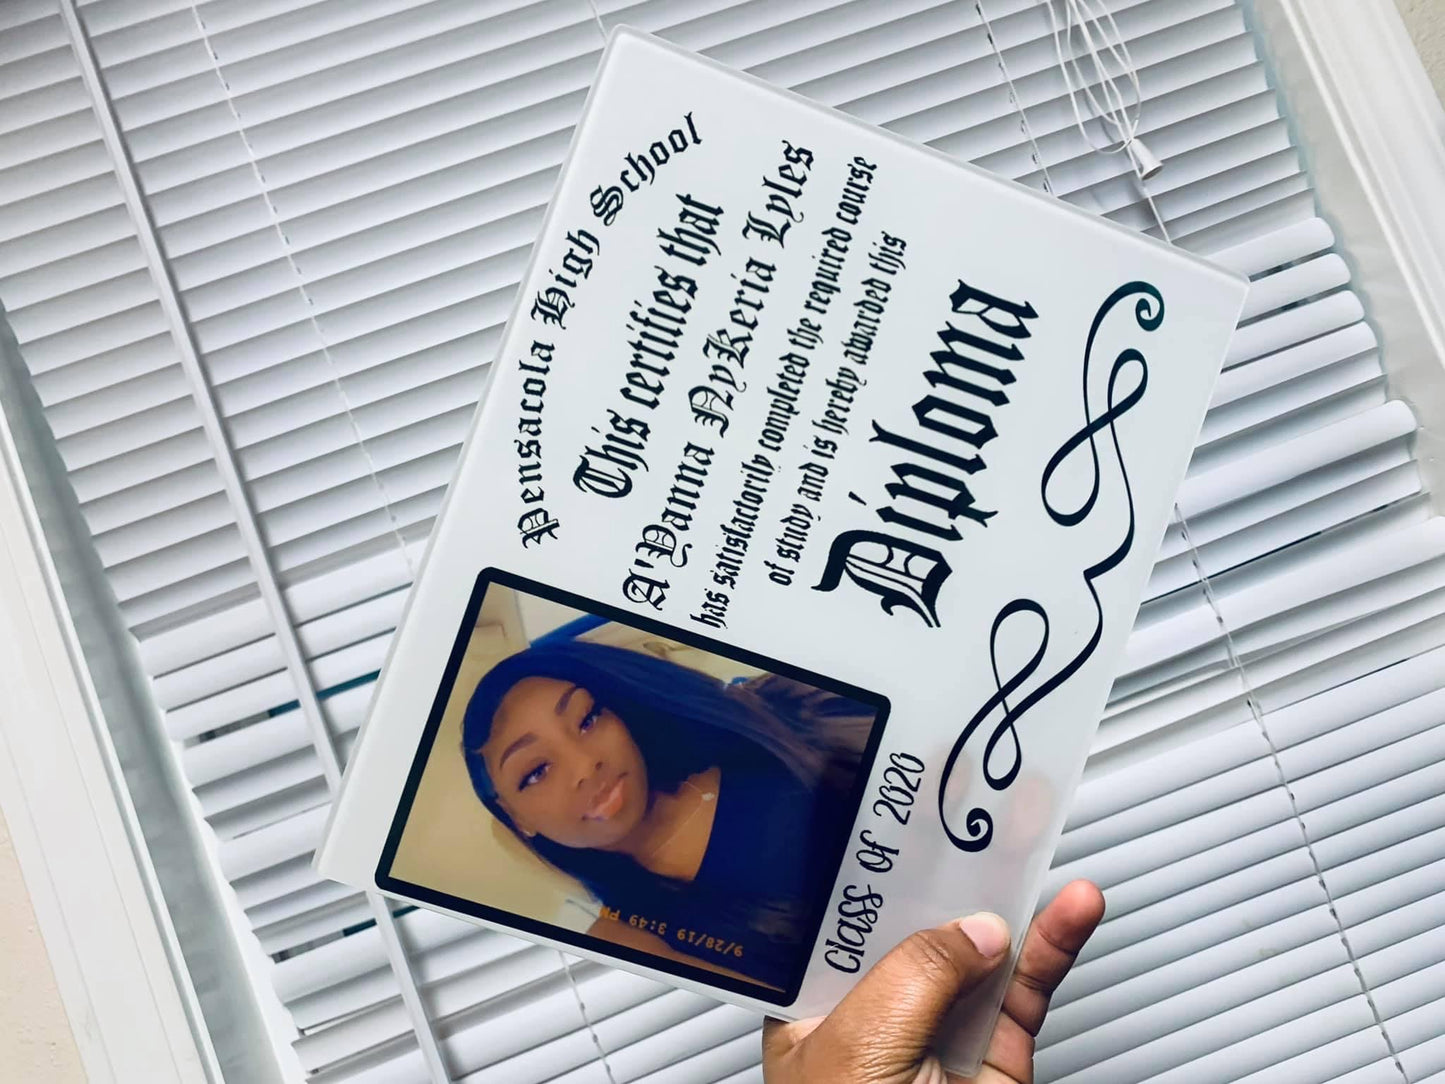 Pensacola High School
This certifies that
A'Yanna NyKeria Lyles
has satisfactorily completed the required course
of study and is hereby awarded this
Diploma
Class Of 2020
9/28/19 3:49 PM